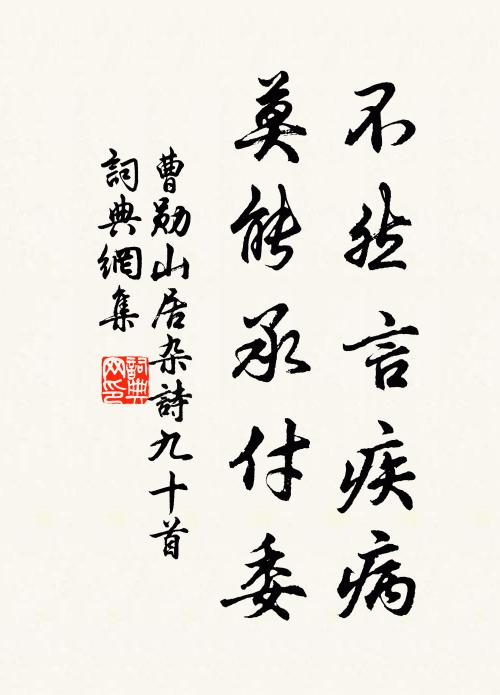 不然言疾病
莫能承付委
曹勛山居杂詩九十首
詞典網集
詞典網印